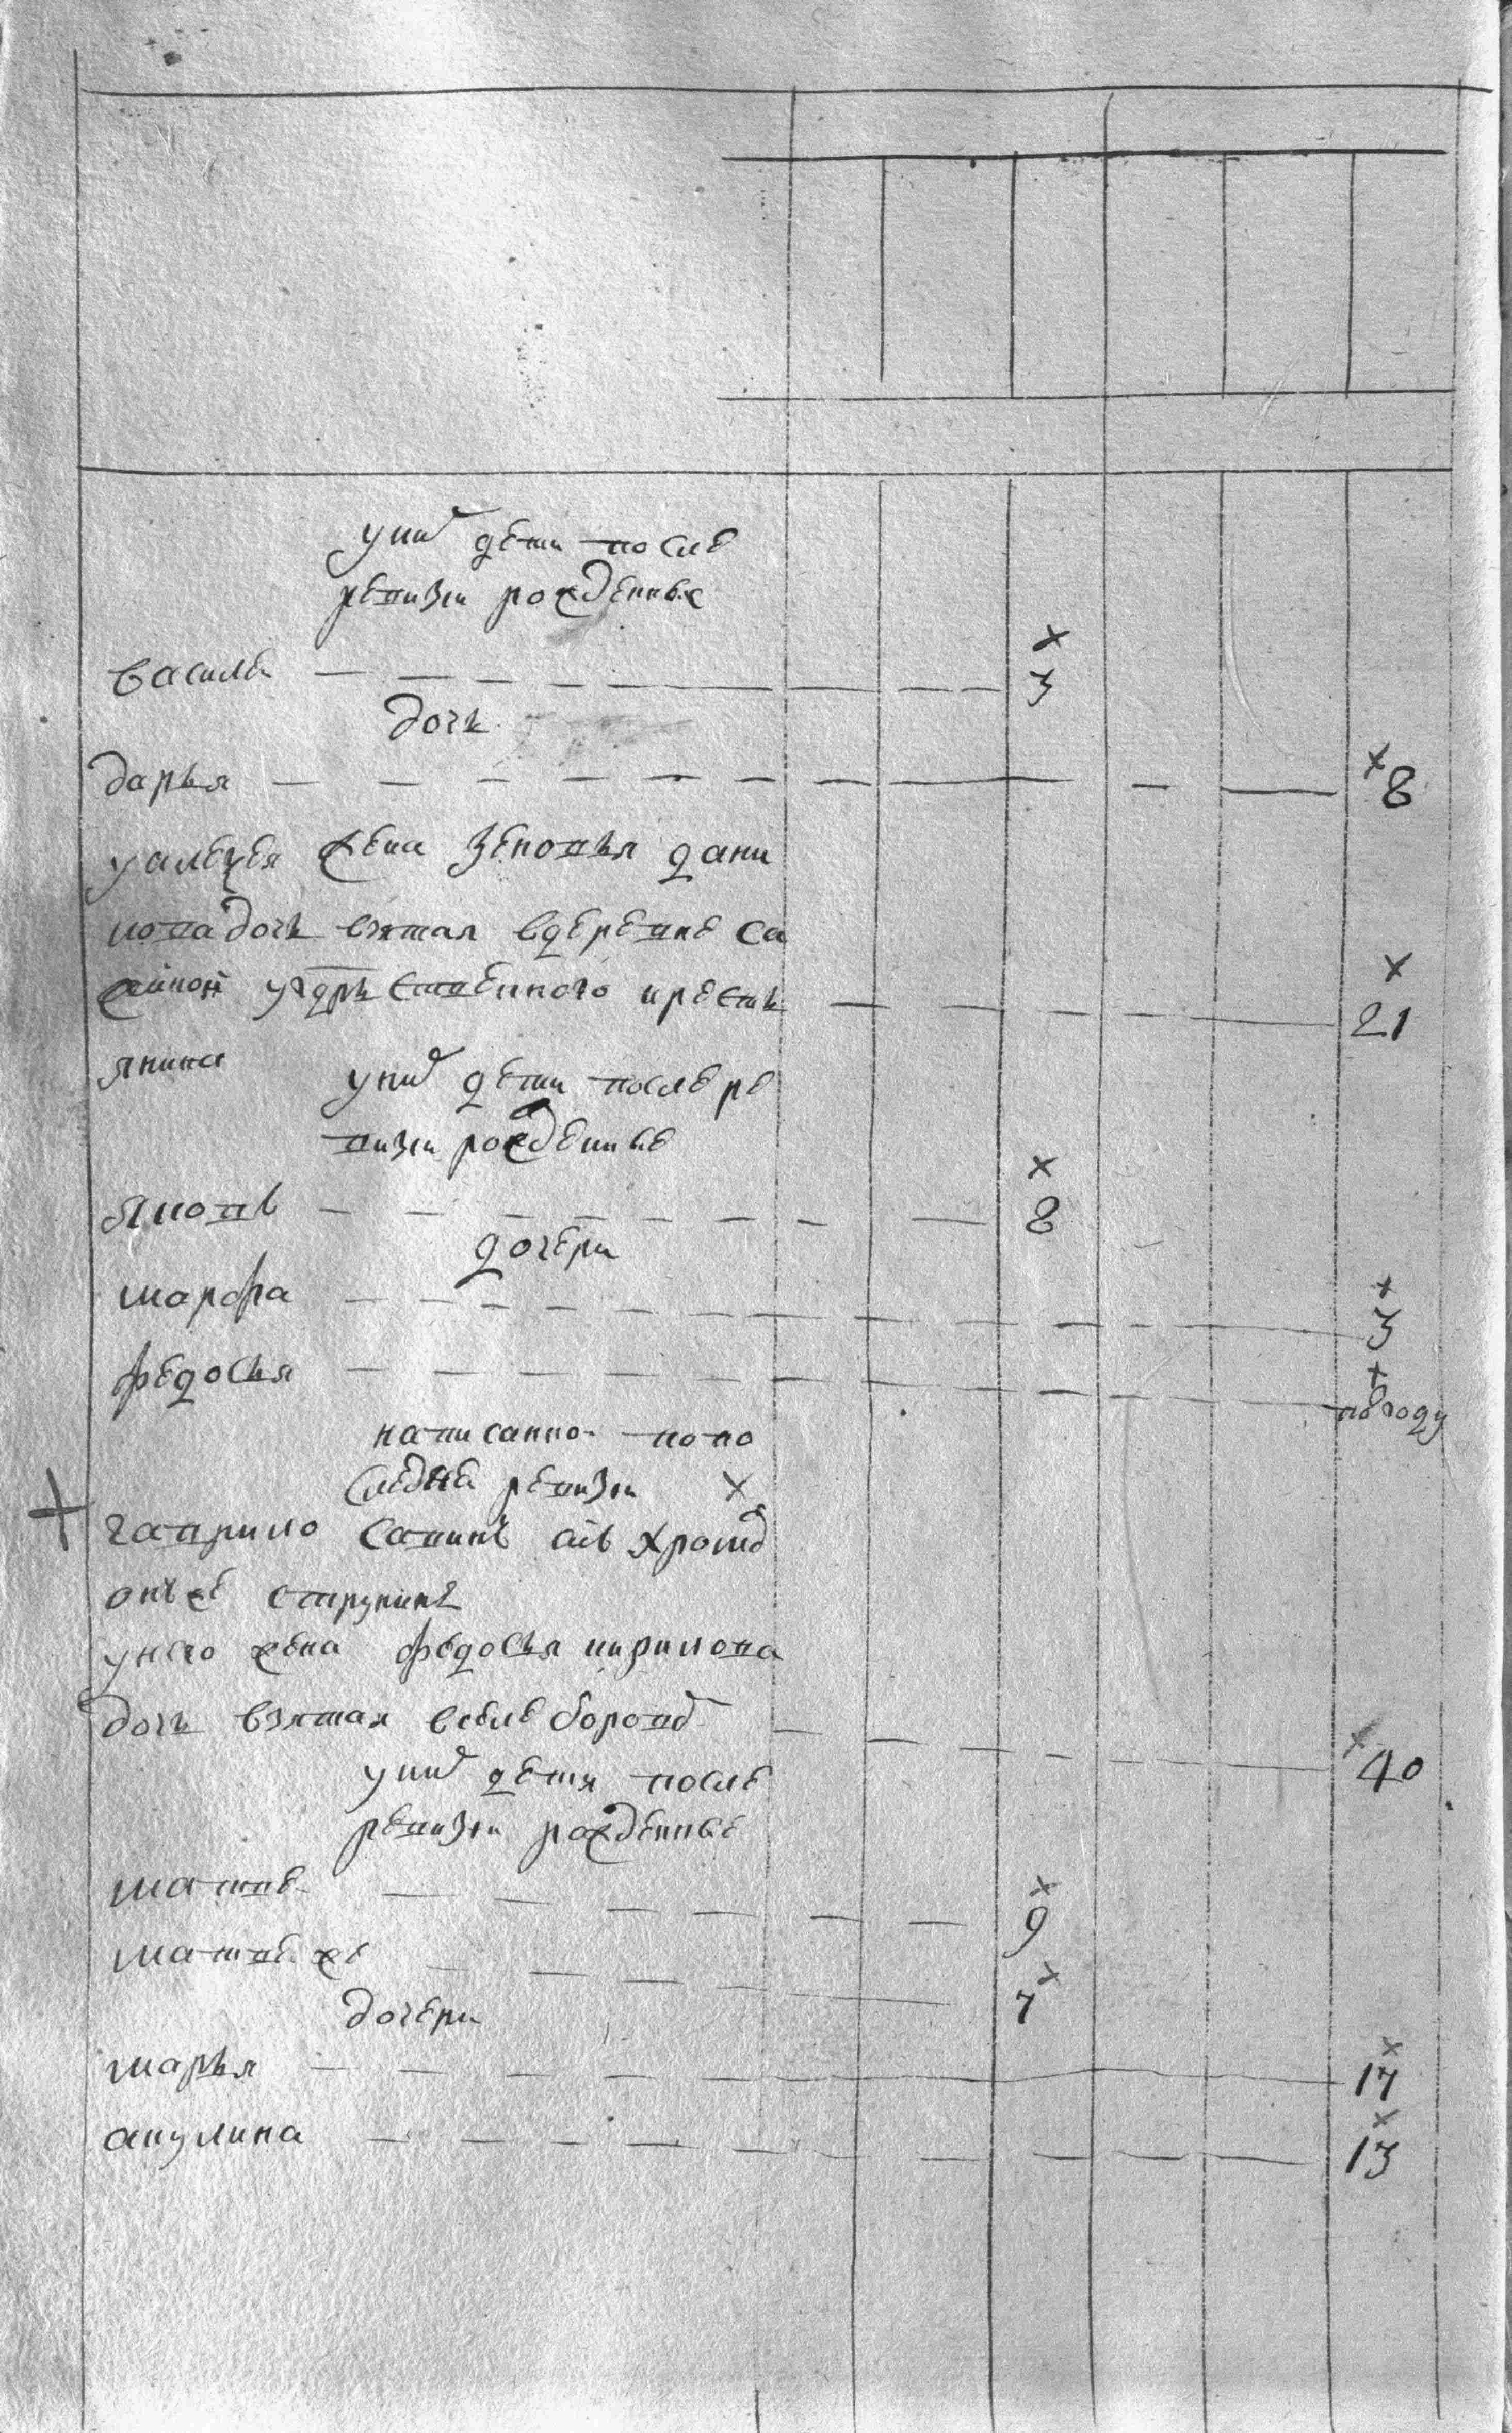 у них дети после
ревизи рожденные
василеи 3
дочь
дарья 8
у алексея жена зеновья дани
лова дочь взятая в деревне са
жиной у гдрьственного кресть 21
янина
у них дети после ре
визи рожденные
яковъ 8
дочери
марфа 3
федосья полгоду
написанной по по
следней ревизи
гаврило савинъ сынъ хромъ
онъ же струнинъ
у него жена федосья кирилова
дочь взятая в селе борово 40
у них дети после
ревизи рожденные
матвеи 9
матвеи же 7
дочери
марья 17
акулина 13